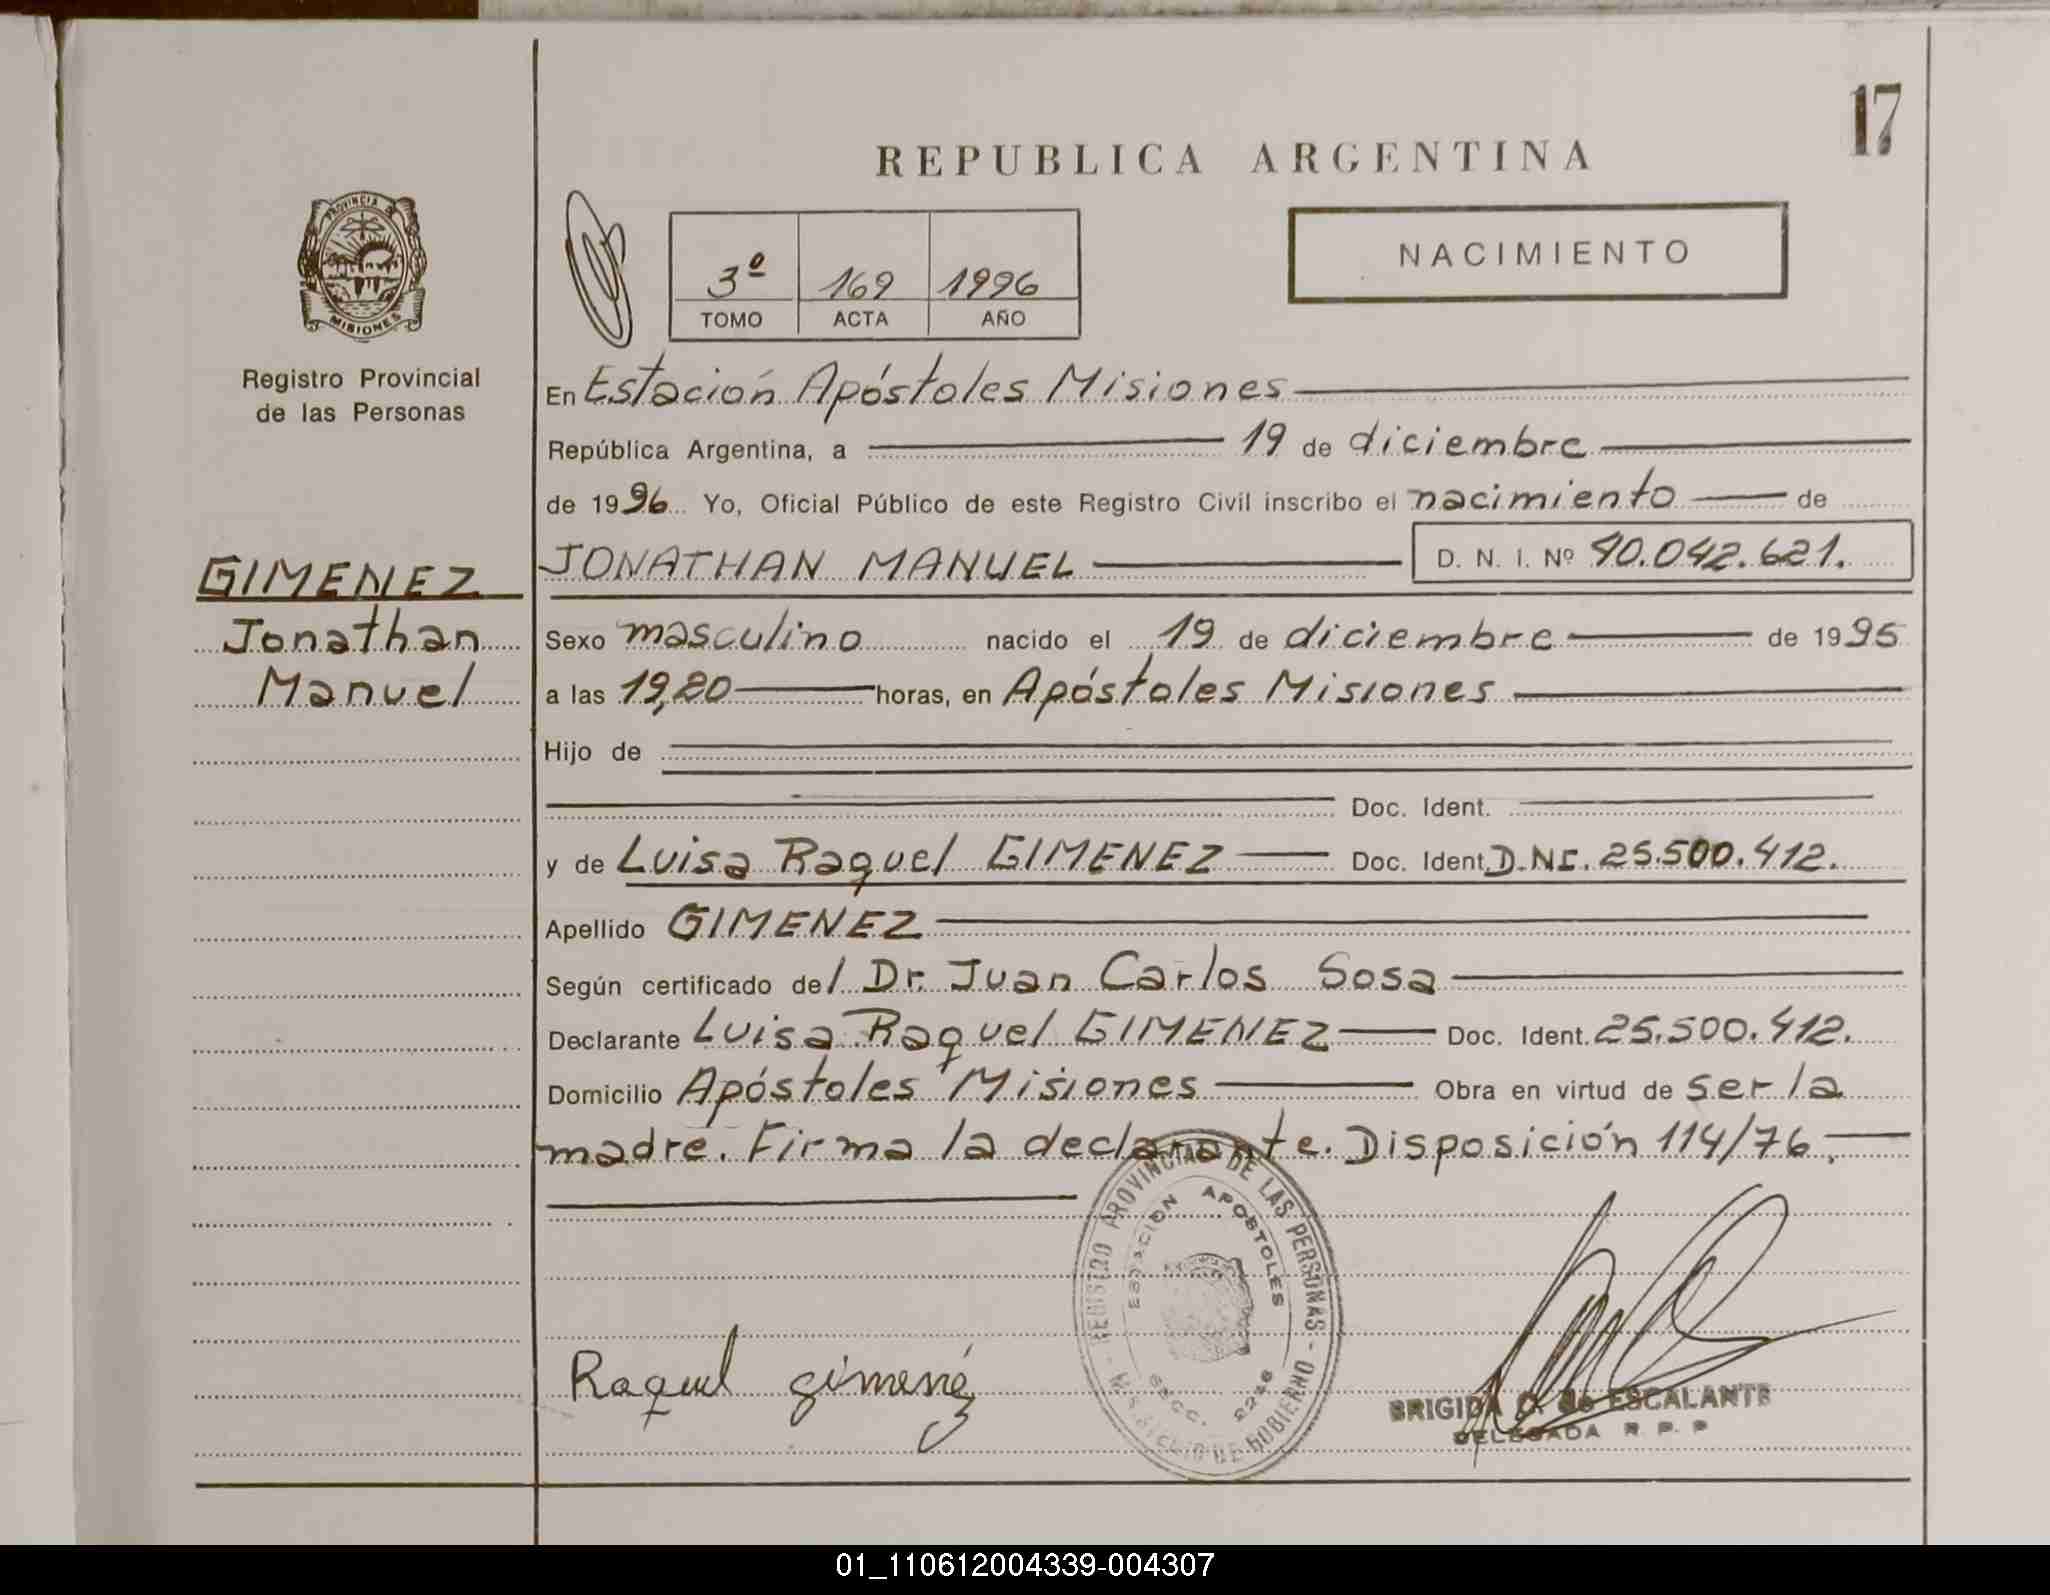 17
REPUBLICA ARGENTINA
PROVINCIA DE
MISIONES
Registro Provincial
de las Personas
NACIMIENTO
3º 169 1996
TOMO ACTA AÑO
En Estación Apóstoles Misiones
República Argentina, a 19 de diciembre
de 1996 Yo, Oficial Público de este Registro Civil inscribo el nacimiento de
GIMENEZ
Jonathan
Manuel
JONATHAN MANUEL D. N. I. Nº 40.042.621.
Sexo masculino nacido el 19 de diciembre de 1995
a las 19,20 horas, en Apóstoles Misiones
Hijo de
Doc. Ident.
y de Luisa Raquel GIMENEZ Doc. Ident. D.NI. 25.500.412.
Apellido GIMENEZ
Según certificado del Dr. Juan Carlos Sosa
Declarante Luisa Raquel GIMENEZ Doc. Ident. 25.500.412.
Domicilio Apóstoles Misiones Obra en virtud de ser la
madre. Firma la declarante. Disposición 114/76.
REGISTRO PROVINCIAL DE LAS PERSONAS - MINISTERIO DE GOBIERNO -
ESTACION APOSTOLES
SECC. 2246
Raquel gimenéz
BRIGIDA C. de ESCALANTE
DELEGADA R. P. P
01_110612004339-004307